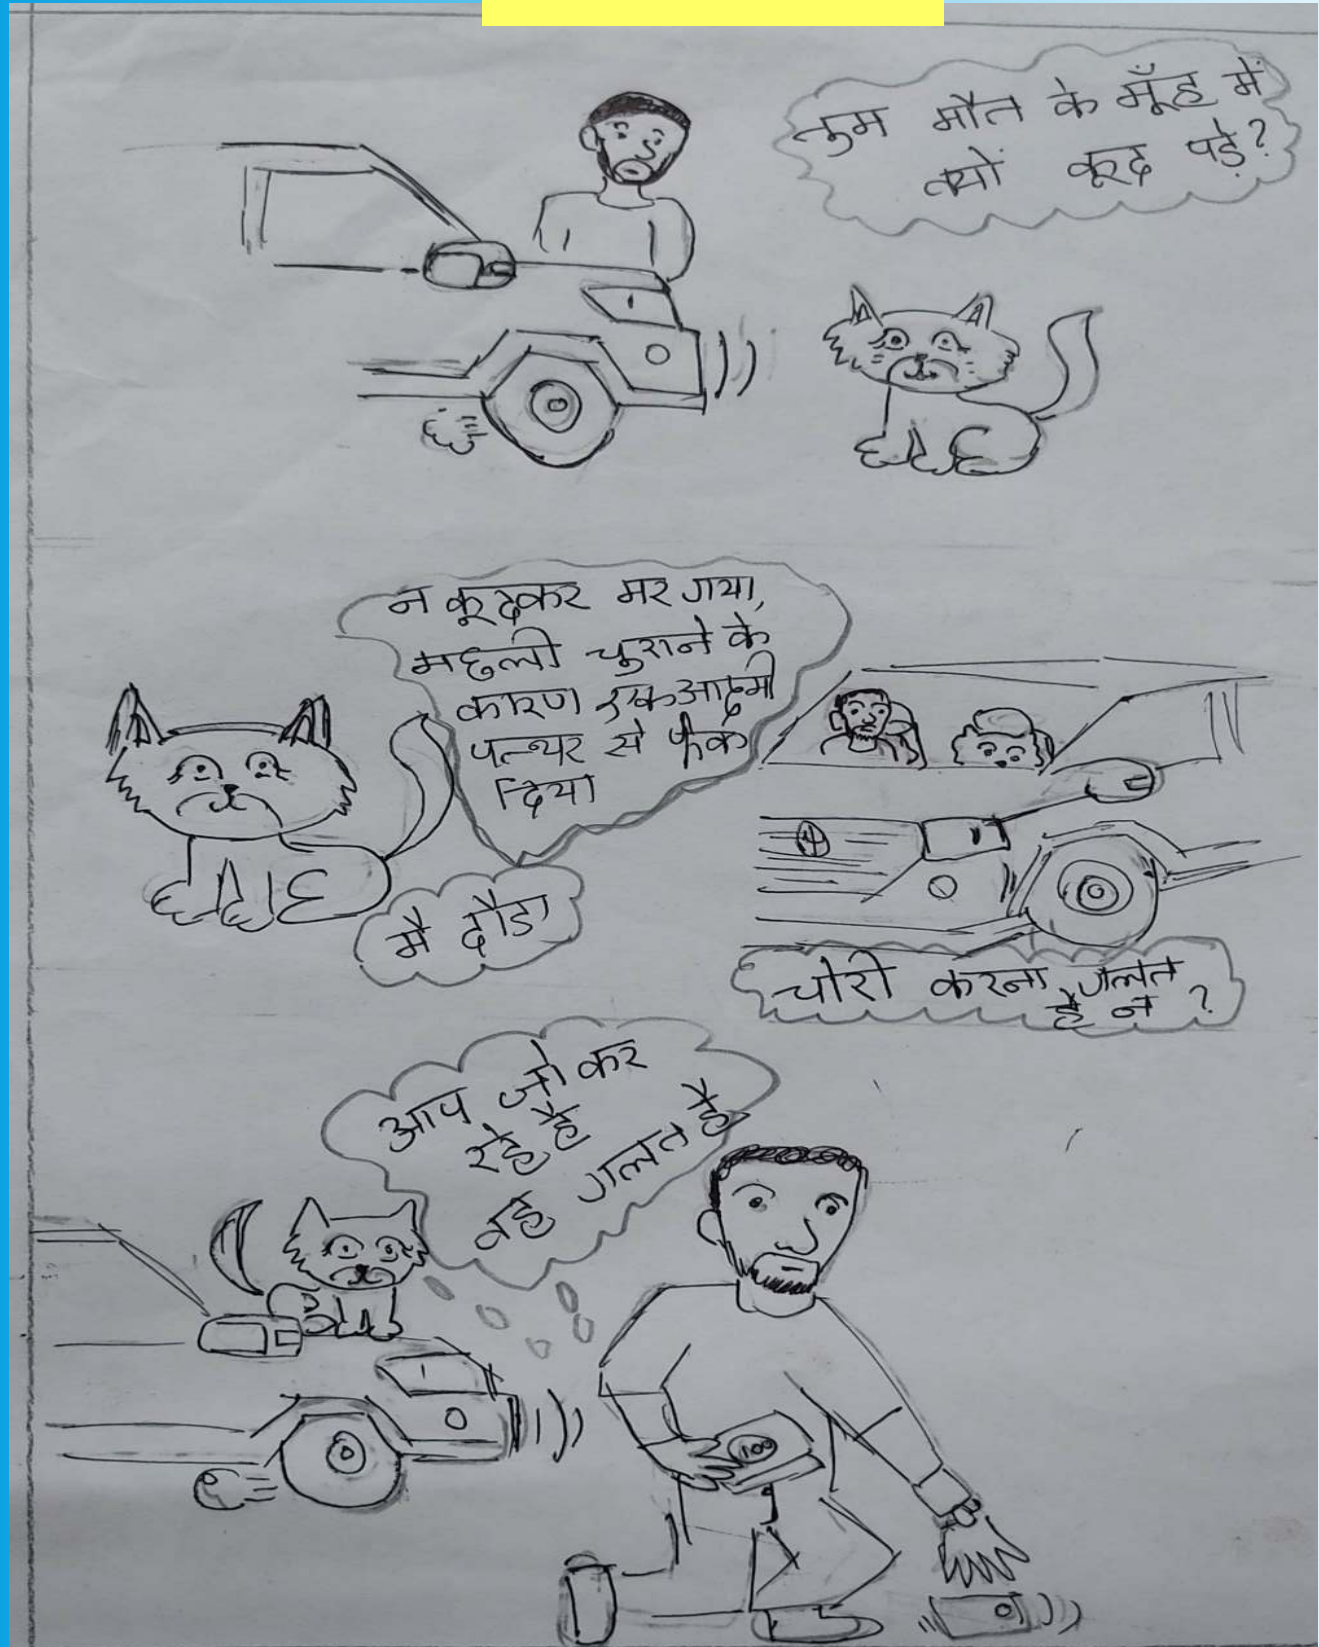 तुम मौत के मूँह में
क्यों कूद पड़े?
न कूदकर मर गया,
मछली चुराने के
कारण एक आदमी
पत्थर से फेंक
दिया
मै दौडा
चोरी करना गलत
है न ?
आप जो कर
रहे है
वह गलत है
100